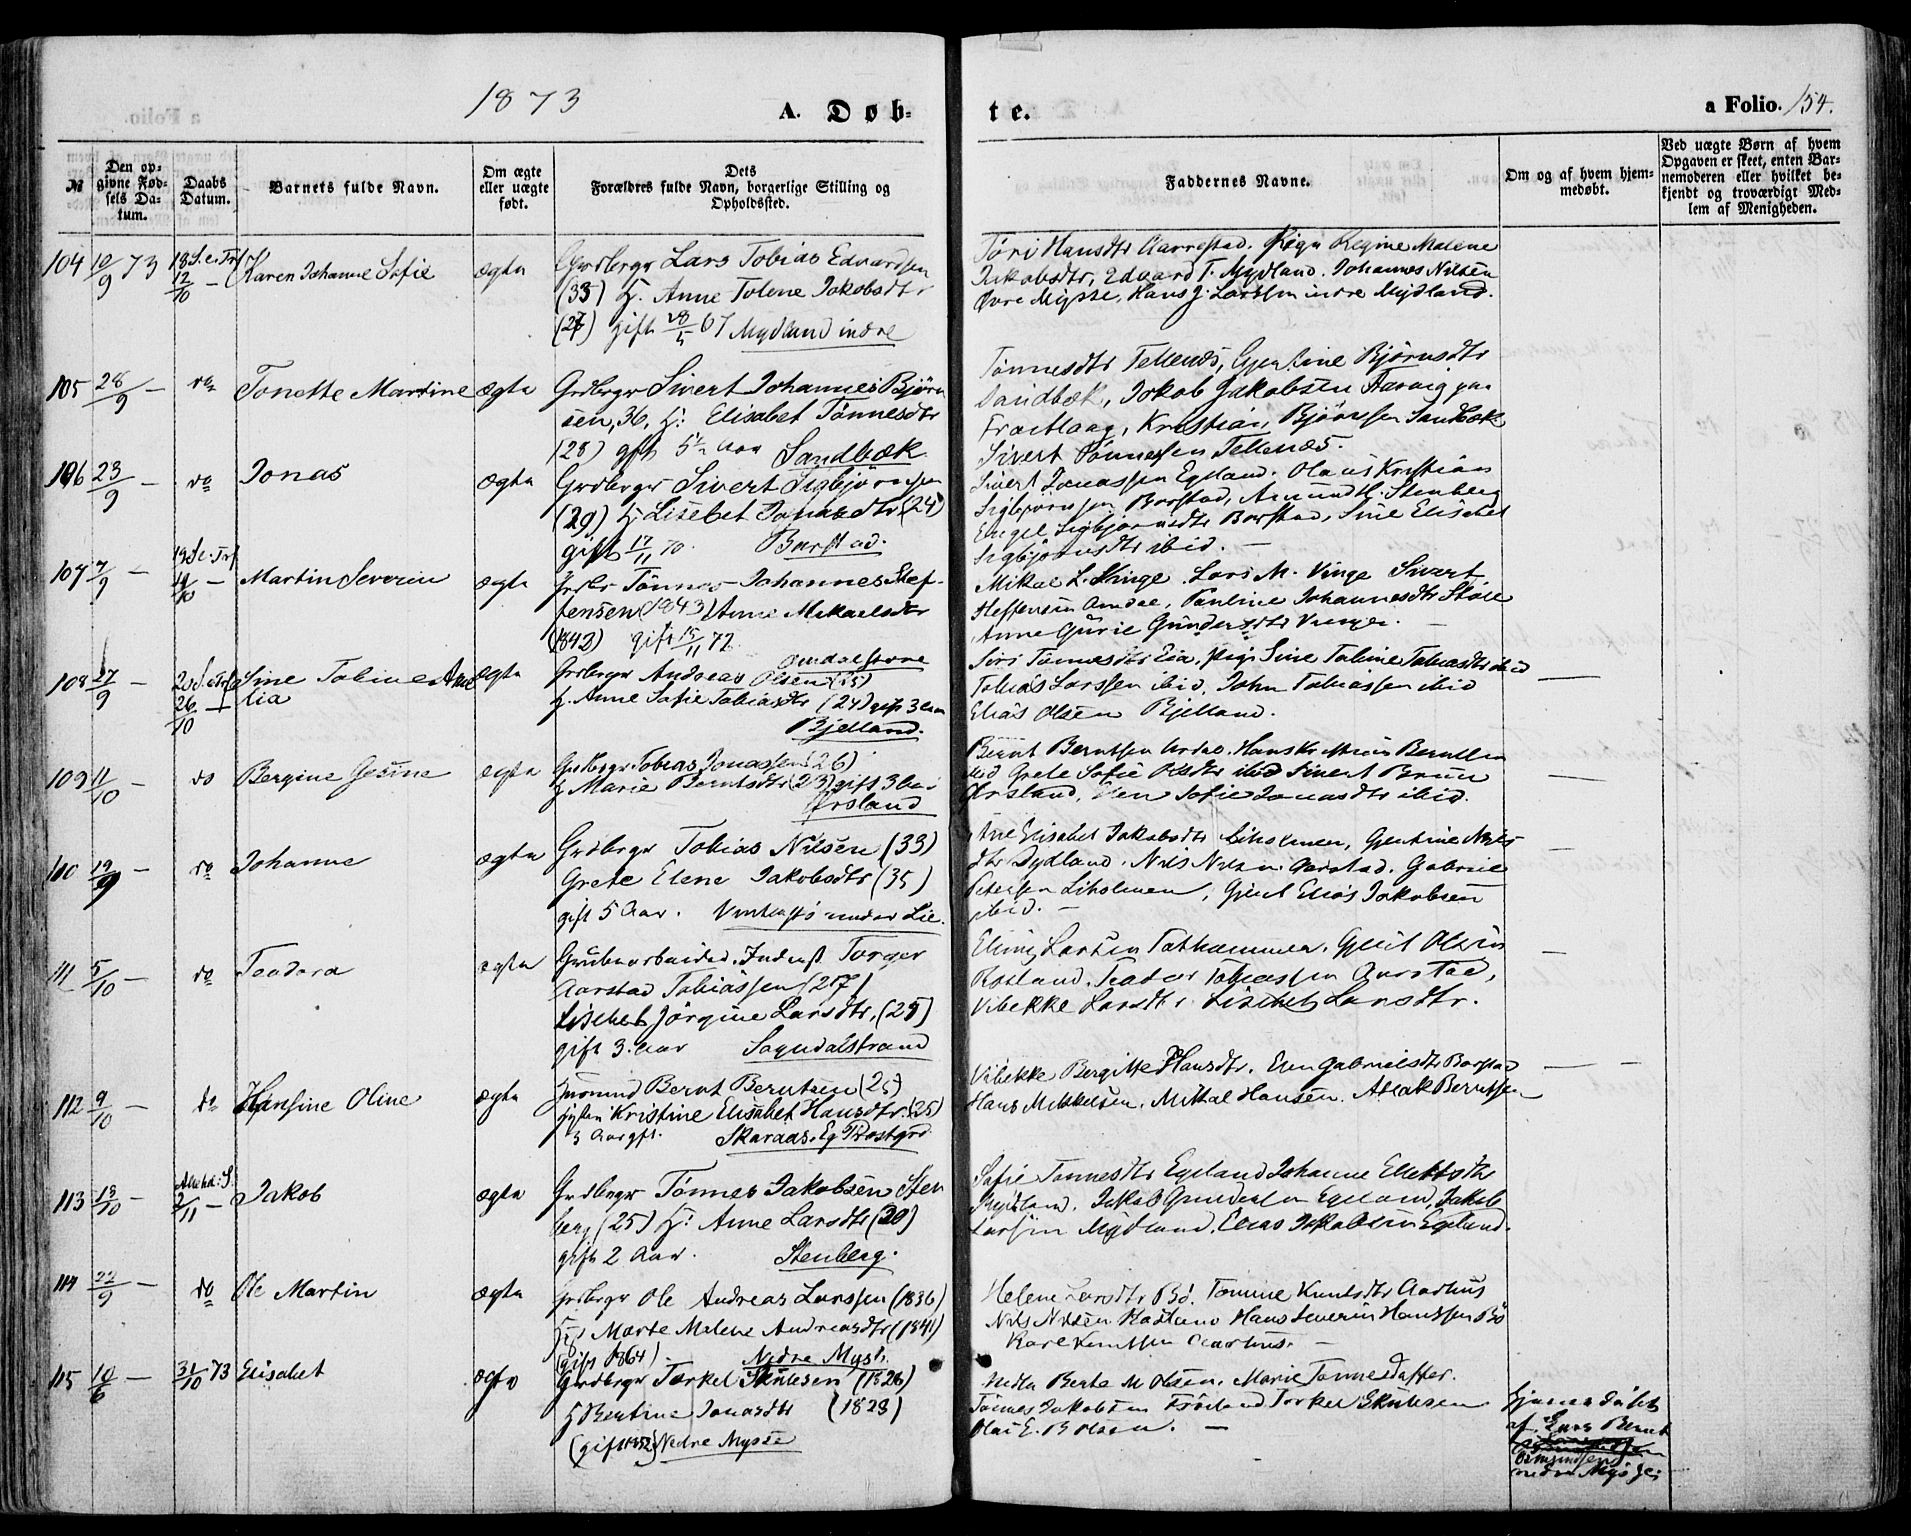 1873
A. Døb-
te.
a Folio. 154.
№
Den op-
givne Fød-
sels Da-
tum.
Daabs
Datum.
Barnets fulde Navn.
Om ægte
eller uægte
født.
Dets
Forældres fulde Navn, borgerlige Stilling og
Opholdssted.
Faddernes Navne.
Om og af hvem hjem-
medøbt.
Ved uægte Børn af hvem
Opgaven er skeet, enten Bar-
nemoderen eller hvilket be-
kjendt og troværdigt Med-
lem af Menigheden.
104 10/9 73 18 S. e. Tr. 12/10 – Karen Johanne Sofie ægte
Grdbrgr Lars Tobias Edvardsen
(33) H. Anne Tolene Jakobsdtr
(27) gift 28/5 67 Mydland indre
Hansdtr Aarrestad. Pige Regine Malene
Jakobsdtr, Edvard T. Mydland. Johannes Nilsen
Øvre Mysse, Hans J. Larssen indre Mydland.
105 28/9 – do Tonette Martine ægte
Grdbrgr Sivert Johannes Bjørn
sen, 36, H: Elisabet Tønnesdtr
(28) gift 5½ Aar Sandbæk
Tønnesdtr Tellenæs, Gjertine Bjørnsdtr
Sandbæk, Jakob Jakobsen
Kristian Bjørnssen Sandbæk
Sivert Tønnessen Tellenæs.
106 23/9 – do Jonas ægte
Grdbrgr Sivert Sigbjørnsen
(29) H. Lisebet Jonasdtr (24)
gift 17/11 70. Barstad.
Sivert Jonassen Egeland. Olaus Kristian
Sigbjørnssen Barstad, Amund H. Stenberg
Engel Sigbjørnsdtr Barstad, Sine Elisabet
Sigbjørnsdtr ibid. –
107 7/9 – 19 S. e. Trf 19/10 – Martin Severin ægte
Tønnes Johannes Stef-
fensen (1843) Anne Mikaelsdtr
(1842) gift 15/11 72.
Omdalstøre
Mikal L. Vinge. Lars M. Vinge Sivert
Steffensen Omdal, Pauline Johannesdtr
Anne Gurie Gundersdtr –
108 27/9 20 S. e. Trf 26/10 – Sine Tobine Ame
lia ægte
Grdbrgr Andreas Olsen (25)
H. Anne Sofie Tobiasdtr (24) gift 3 Aar
Bjelland.
Siri Tønnesdtr Eia, Pige Sine Tobine Tobiasdtr ibid
Tobias Larssen ibid, John Tobiassen ibid
Elias Olsen Bjelland. –
109 11/10 – do Bergine Gesine ægte
Grdbrgr Tobias Jonassen (26)
H Marie Berntsdtr (23) gift 3 Aar
Ørsland
Bernt Berntsen Hans Kristian Berntsen
ibid Grete Sofie Olsdtr ibid Sivert Bruun
Ørsland, Elen Sofie Jonasdtr ibid. –
110 19/9 – do Johanne ægte
Grdbrgr Tobias Nilsen (33)
Grete Elene Jakobsdtr (35)
gift 5 Aar. under Lie.
Ane Elisabet Jakobsdtr Liholmen, Gjertine Nils
dtr Dydland. Nils Nilsen Aarstad. Gabriel
Petersen Liholmen, Gjert Elias Jakobsen
ibid. – –
111 5/10 – do Teodora ægte
Grubearbeider, Inderst Torger
Aarstad Tobiassen (27)
Lisebet Jørgine Larsdtr, (25)
gift 3. Aar Sogndalstrand
Elling Larsen Gjert Olsen
Rosland. Teodor Tobiassen Aarstad,
Vibekke Larsdtr Lisebet Larsdtr. –
112 9/10 – do Hansine Oline ægte
Husmand Bernt Berntsen (25)
Kristine Elisabet Hansdtr. (25)
3 Aar gft. Skaraas. Eg. Prostgrd
Vibekke Bergitte Hansdtr. Elen Gabrielsdtr Barstad
Hans Mikkelsen. Mikal Hansen. Aslak Berntsen – –
113 18/10 – Allehel: S. 2/11 – Jakob ægte
Grdbrgr Tønnes Jakobsen Sten
berg (25) H: Anne Larsdtr (20)
gift 2 Aar. Stenberg.
Sofie Tønnesdtr Egeland Johanne
Mydland. Jakob Gundersen Egeland, Jakob
Larssen Mydland. Elias Jakobsen Egeland.
114 22/9 – do Ole Martin ægte
Grdbrgr Ole Andreas Larssen (1836)
H. Marte Malene Andreasdtr (1841)
(gift 1864) Nedre Mysse
Helene Larsdtr Bø. Tomine Knutsdtr Aarhus
Nils Nilsen Rosland Hans Severin Hanssen Bø
Kare Knutssen Aarhus. –
115 10/6 – 31/10 73 Elisabet ægte
Grdbrgr Torkel Skulesen (1826)
H Bertine Jonasdtr (1828)
(gift 1852) Nedre Mysse
Berte M Olsen. Marie Tønnesdatter.
Tønnes Jakobsen Frøiland Torkel Skulesen
Olai E. B Olsen. –
Hjemmedøbt
af Lars Bernt
nedre Mysse.